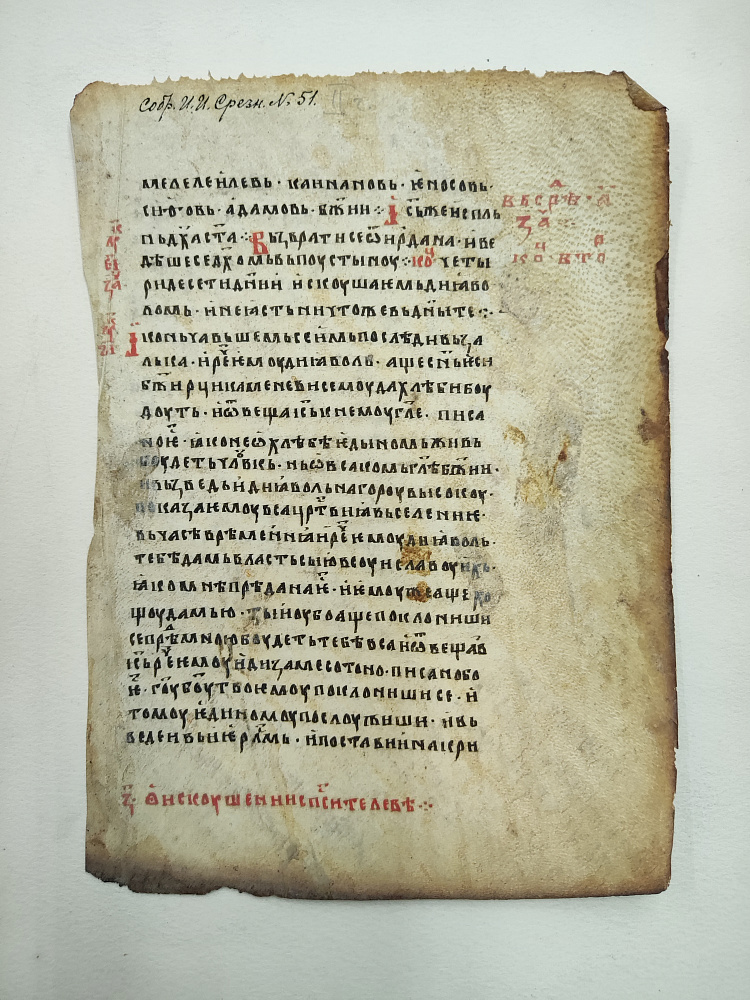 Собр. И. И. Срезн. № 51.
мелелеилевь · каинановь · ѥносовь·
сиѳовь · адамовь · б҃жии ⁘ І҃сь же испль
нь д҃ха с҃та ⁘ Възврати се ѿ иѡрдана · и ве
дѣше се д҃хомь вь поустыноу ⁘ коц҃ четы
ридесети д҃нии искоушаѥмь диꙗво
ломь · и не ꙗсть ничтоже вь д҃ни те ⁘
І коньчавьшемь се имь послѣди вьза
лька · и рече ѥмоу диꙗволь · аще с҃нь ѥси
б҃жии рци каменеви семоу да хлѣби боу
доуть · и ѿвеща і҃сь кь немоу г҃ле · писа
но ѥ҃ · ꙗко не ѡ хлѣбѣ ѥдиномь живь
боудеть чл҃овкь · нь ѡ всакомь г҃лѣ б҃жии ·
и вьзведь и диꙗволь на гороу високоу ·
показа ѥмоу вса ц҃рствиꙗ вьселениѥ ·
вь часѣ врѣмениꙗ и рече ѥмоу диꙗволь ·
тебѣ дамь власть сию всоу и славоу ихь ·
ꙗко мнѣ прѣдана ѥ҃ · и ѥмоуже аще хо
щоу дамь ю · ты ноубо аще поклониши
се прѣд мною боудеть тебѣ вса и ѿвещав
і҃сь рече ѥмоу иди за ме сотоно · писано бо
ѥ҃ · г҃оу б҃оу твоѥмоу поклониши се · и
томоу ѥдиномоу послоужиши · и вь
веде и вь иѥр҃лмь · и постави и на кри
з҃ · ѡ искоушении сп҃сителевѣ ⁘